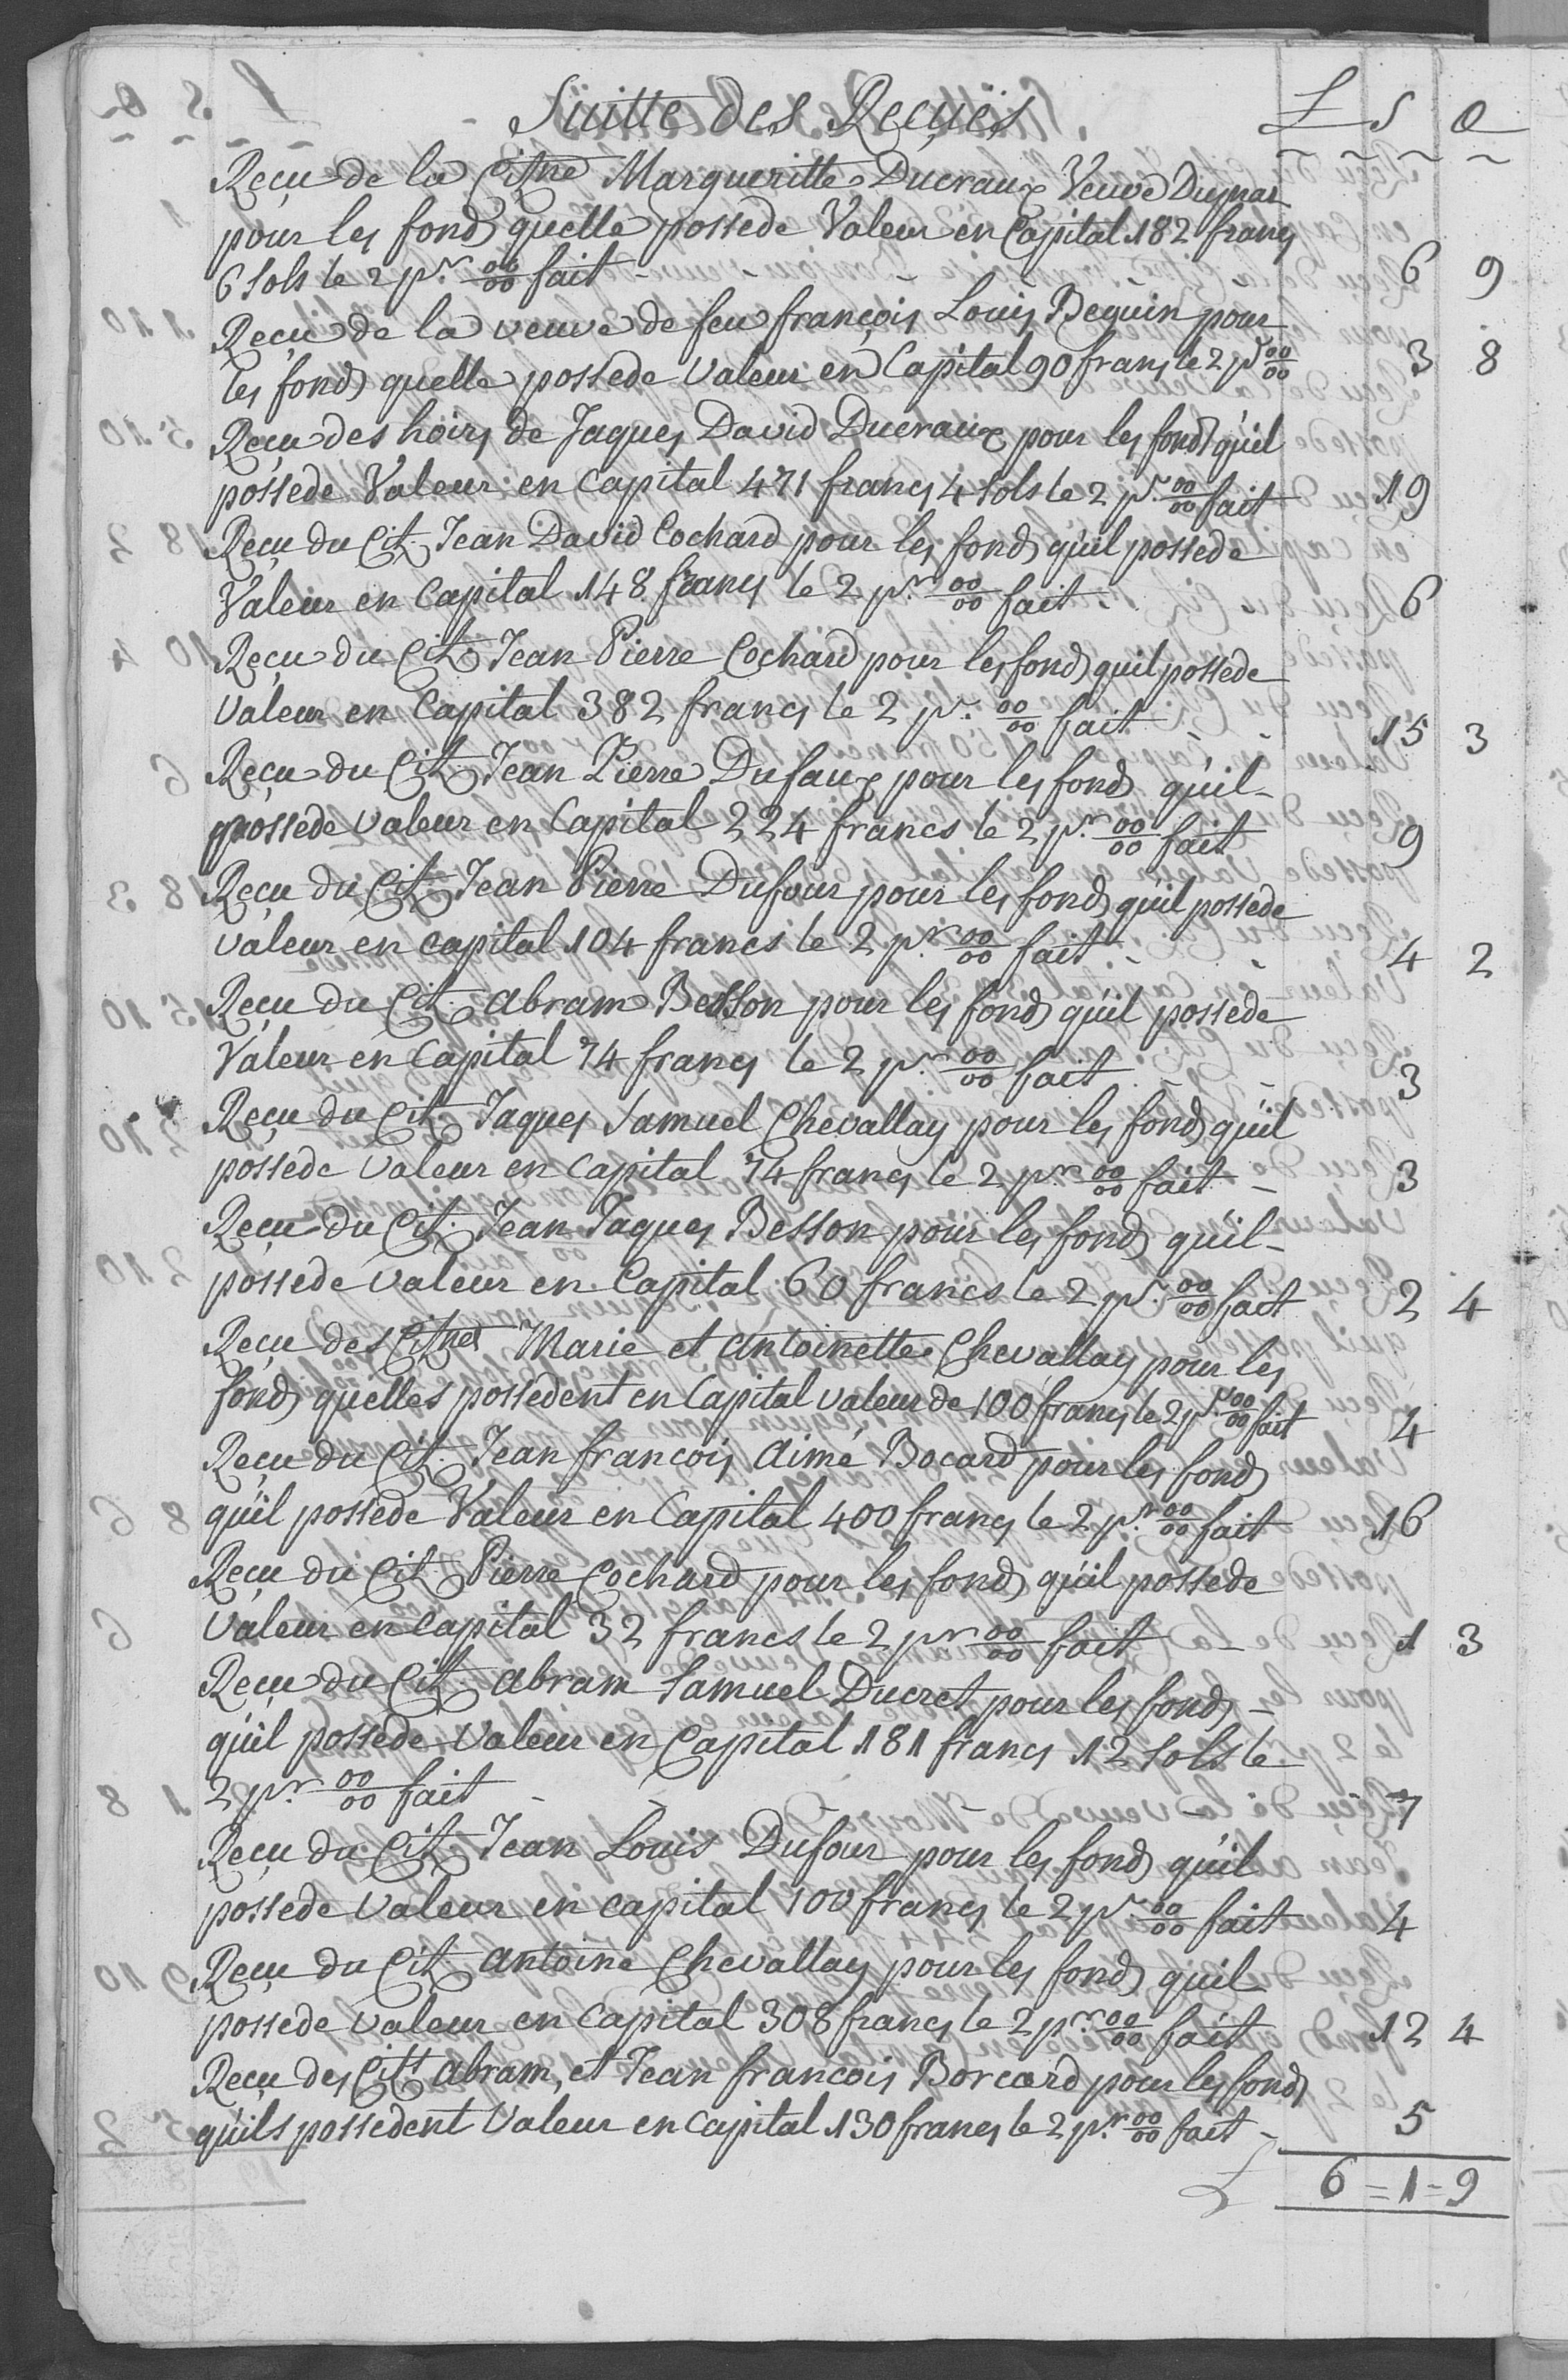 Suitte des Reçües L S D
Reçu de la Citne Margueritte Ducraux Veuve Dupraz
pour les fonds quelle possede Valeur en Capital 182 francs
6 sols le 2 pr. 00/00 fait - 6 9
Reçu de la veuve de feu françois Louis Beguin pour
les fonds quelle possede Valeur en Capital 90 francs le 2 pr 00/00 3 8
Reçu des hoirs de Jaques David Ducraux pour les fonds qu'il
possede Valeur en Capital 471 francs 4 sols le 2 pr. 00/00 fait 19
Reçu du Cit. Jean David Cochard pour les fonds qu'il possede
Valeur en Capital 148 francs le 2 pr. 00/00 fait - 6
Reçu du Cit. Jean Pierre Cochard pour les fonds quil possede
Valeur en Capital 382 francs le 2 pr. 00/00 fait - - 15 3
Reçu du Cit. Jean Pierre Dufaux pour les fonds qu'il -
possede Valeur en Capital 224 francs le 2 pr. 00/00 fait 9
Reçu du Cit. Jean Pierre Dufour pour les fonds qu'il possede
Valeur en Capital 104 francs le 2 pr. 00/00 fait - - 4 2
Reçu du Cit. Abram Besson pour les fonds qu'il possede
Valeur en Capital 74 francs le 2 pr. 00/00 fait - - 3
Reçu du Cit. Jaques Samuel Chevallay pour les fonds qu'il
possede Valeur en Capital 74 francs le 2 pr 00/00 fait - 3
Reçu du Cit. Jean Jaques Besson pour les fonds qu'il -
possede Valeur en Capital 60 francs le 2 pr. 00/00 fait 2 4
Reçu des Citnes Marie et Antoinette Chevallay pour les
fonds quelles possedent en Capital valeur de 100 francs le 2 pr. 00/00 fait 4
Reçu du Cit. Jean françois Aimé Bocard pour les fonds
qu'il possede Valeur en Capital 400 francs le 2 pr. 00/00 fait 16
Reçu du Cit. Pierre Cochard pour les fonds qu'il possede
Valeur en Capital 32 francs le 2 pr 00/00 fait - 1 3
Reçu du Cit. Abram Samuel Ducret pour les fonds -
qu'il possede Valeur en Capital 181 francs 12 sols le
2 pr. 00/00 fait - - 7
Reçu du Cit. Jean Louis Dufour pour les fonds qu'il
possede Valeur en capital 100 francs le 2 pr. 00/00 fait 4
Reçu du Cit. Antoine Chevallay pour les fonds quil
possede Valeur en Capital 308 francs le 2 pr. 00/00 fait 12 4
Reçu des Citt Abram, et Jean francois Borcard pour les fonds
qu'ils possedent Valeur en Capital 130 francs le 2 pr. 00/00 fait - 5
L 6 = 1 = 9